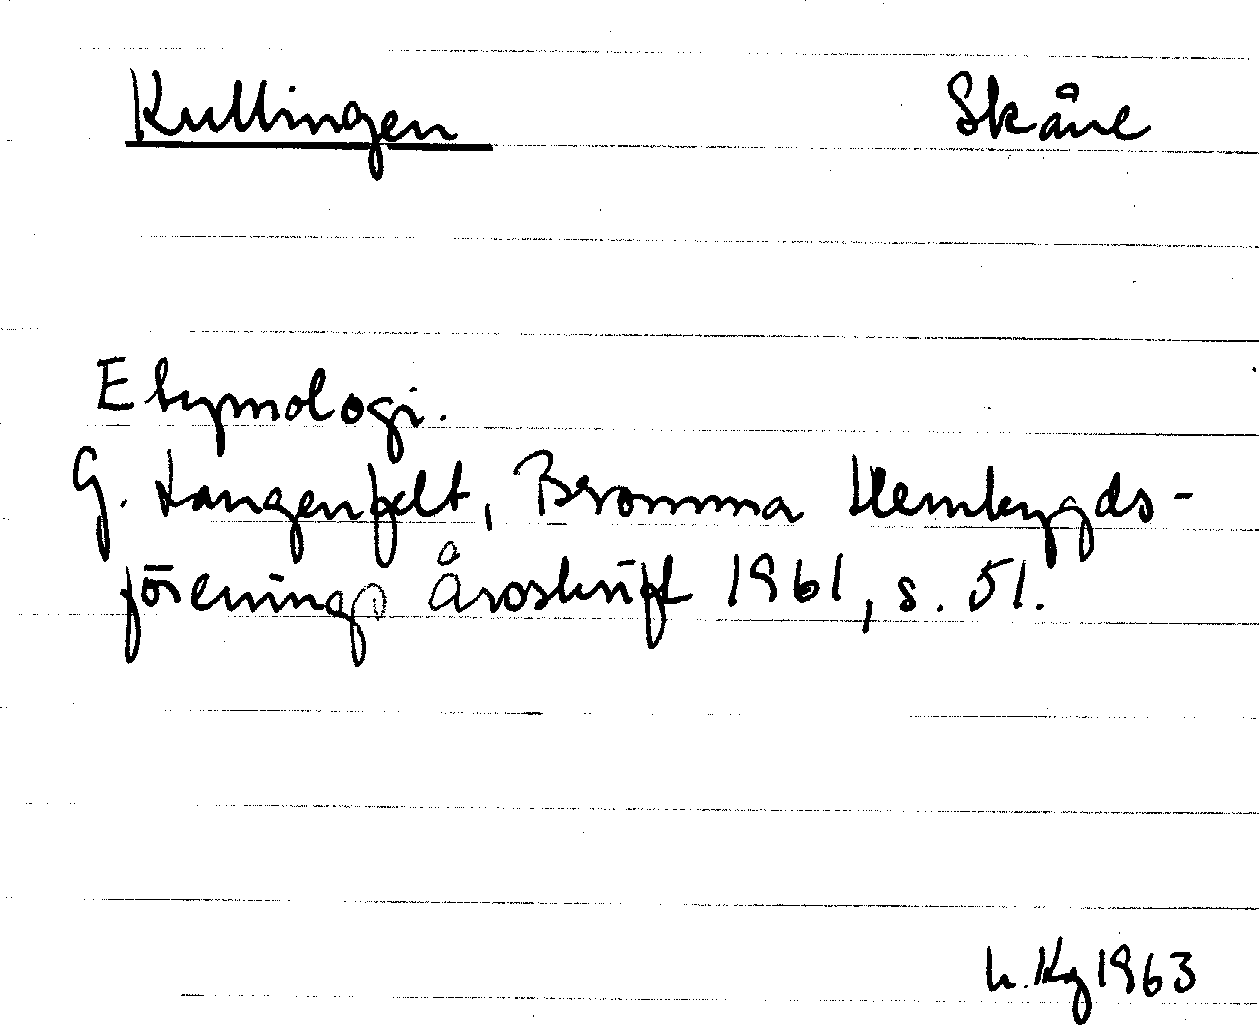 Kullingen Skåne
Etymologi.
G. Langenfelt, Bromma Hembygds-
förenings Årsskrift 1961, s. 51.
h. Kg 1963